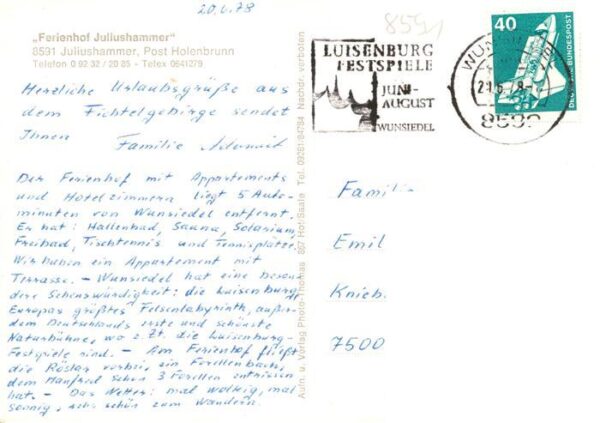 20.6.78
8591
„Ferienhof Juliushammer"
8591 Juliushammer, Post Holenbrunn
Telefon 0 92 32 / 20 85 - Telex 0641279
Herzliche Urlaubsgrüße aus
dem Fichtelgebirge sendet
Ihnen
Familie
Der Ferienhof mit Appartements
und Hotelzimmern liegt 5 Auto-
minuten von Wunsiedel entfernt.
Er hat: Hallenbad, Sauna, Solarium,
Freibad, Tischtennis und Tennisplätze.
Wir haben ein Appartement mit
Terrasse. – Wunsiedel hat eine beson
dere Sehenswürdigkeit: die Luisenburg
Europas größtes Felsenlabyrinth, außer-
dem Deutschlands erste und schönste
Naturbühne, wo z.Zt. die Luisenburg-
Festspiele sind. – Am Ferienhof fließt
die Röslau vorbei, ein Forellenbach,
dem Manfred schon 3 Forellen entrissen
hat. – Das Wetter: mal wolkig, mal
sonnig, sehr schön zum Wandern.
Aufn. u. Verlag Photo-Thomas 867 Hof/Saale Tel. 09281/84794 Nachdr. verboten
LUISENBURG
FESTSPIELE
JUNI-
AUGUST
WUNSIEDEL
40
DEUTSCHE BUNDESPOST
Familie
Emil
Knieb.
7500